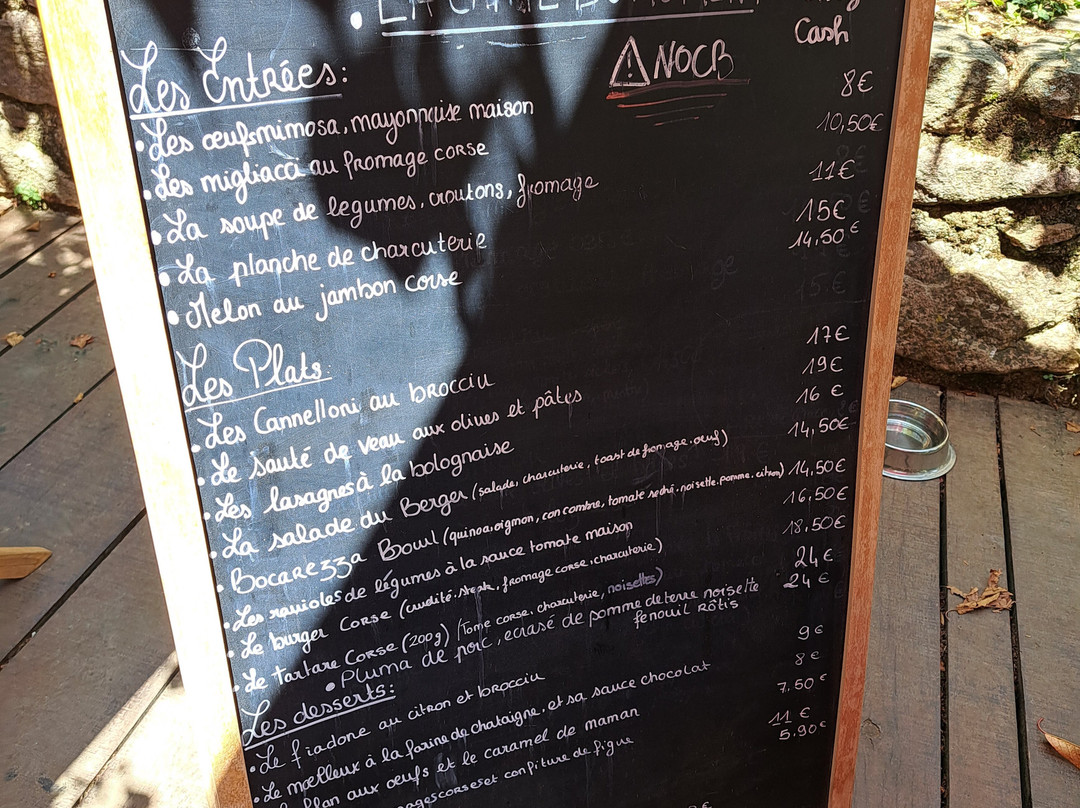 Cash
Les Entrées:
⚠ NOCB
• Les œufs mimosa, mayonnaise maison 8€
• Les migliacci au fromage corse 10,50€
• La soupe de legumes, croutons, fromage 11€
• La planche de charcuterie 15€
• Melon au jambon corse 14,50€
Les Plats:
• Les Cannelloni au brocciu 17€
• Le sauté de veau aux olives et pâtes 19€
• Les lasagnes à la bolognaise 16 €
• La salade du Berger (salade, charcuterie, toast de fromage, œuf) 14,50€
• Bocarezza Bowl (quinoa, oignon, concombre, tomate seché, noisette, pomme, citron) 14,50€
• Les ravioles de légumes à la sauce tomate maison 16,50€
• Le burger Corse (crudité, steak, fromage corse, charcuterie) 18,50€
• Le tartare Corse (200g) (Tome corse, charcuterie, noisettes) 24€
• Pluma de porc, ecrasé de pomme de terre noisette 24€
fenouil Rôtis
Les desserts:
• Le fiadone au citron et brocciu 9€
• Le mœlleux à la farine de chataigne, et sa sauce chocolat 8€
flan aux œufs et le caramel de maman 7,50€
corses et confiture de figue 11 €
5.90€